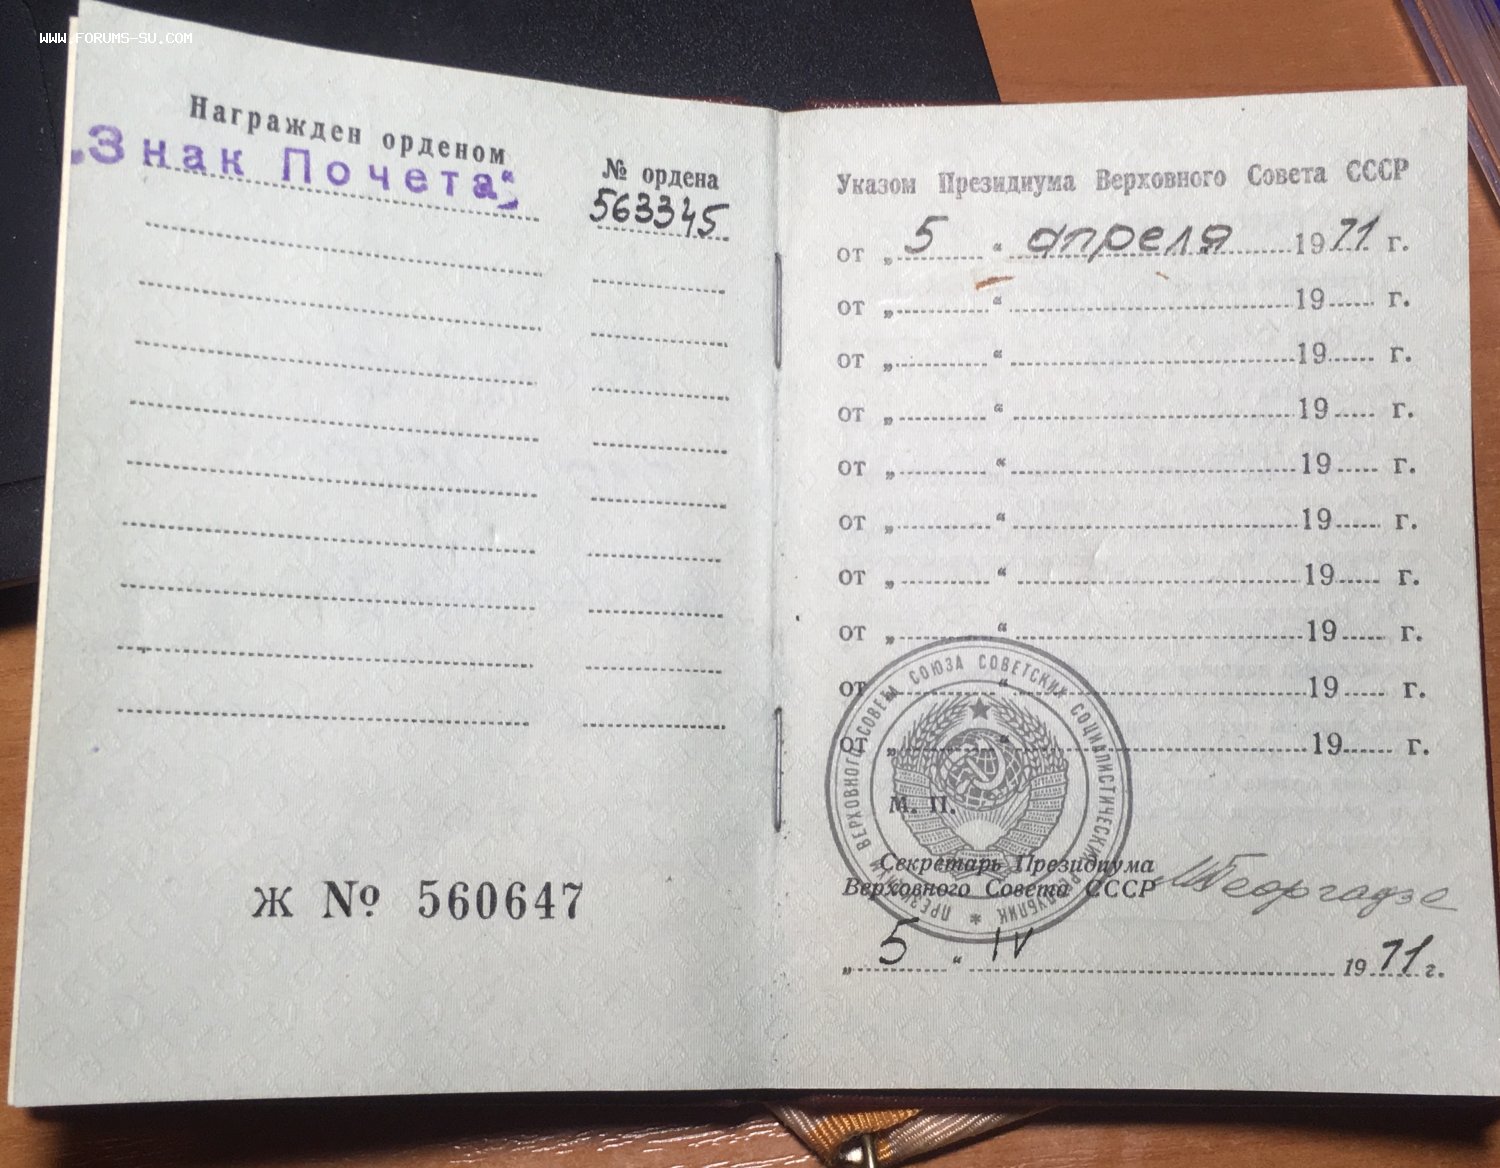 WWW.FORUMS-SU.COM
Награжден орденом
„Знак Почета“
№ ордена
563345
Ж № 560647
Указом Президиума Верховного Совета СССР
от „ 5 “ апреля 1971 г.
от „ “ 19 г.
от „ “ 19 г.
от „ “ 19 г.
от „ “ 19 г.
от „ “ 19 г.
от „ “ 19 г.
от „ “ 19 г.
от „ “ 19 г.
от „ “ 19 г.
ПРЕЗИДИУМ ВЕРХОВНОГО СОВЕТА СОЮЗА СОВЕТСКИХ СОЦИАЛИСТИЧЕСКИХ РЕСПУБЛИК
М. П.
Секретарь Президиума
Верховного Совета СССР
МГеоргадзе
„ 5 “ IV 1971 г.